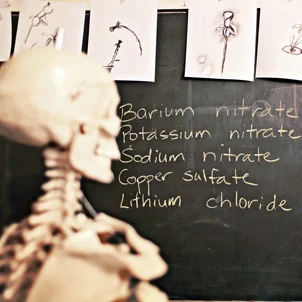 Barium nitrate
Potassium nitrate
Sodium nitrate
Copper sulfate
Lithium chloride